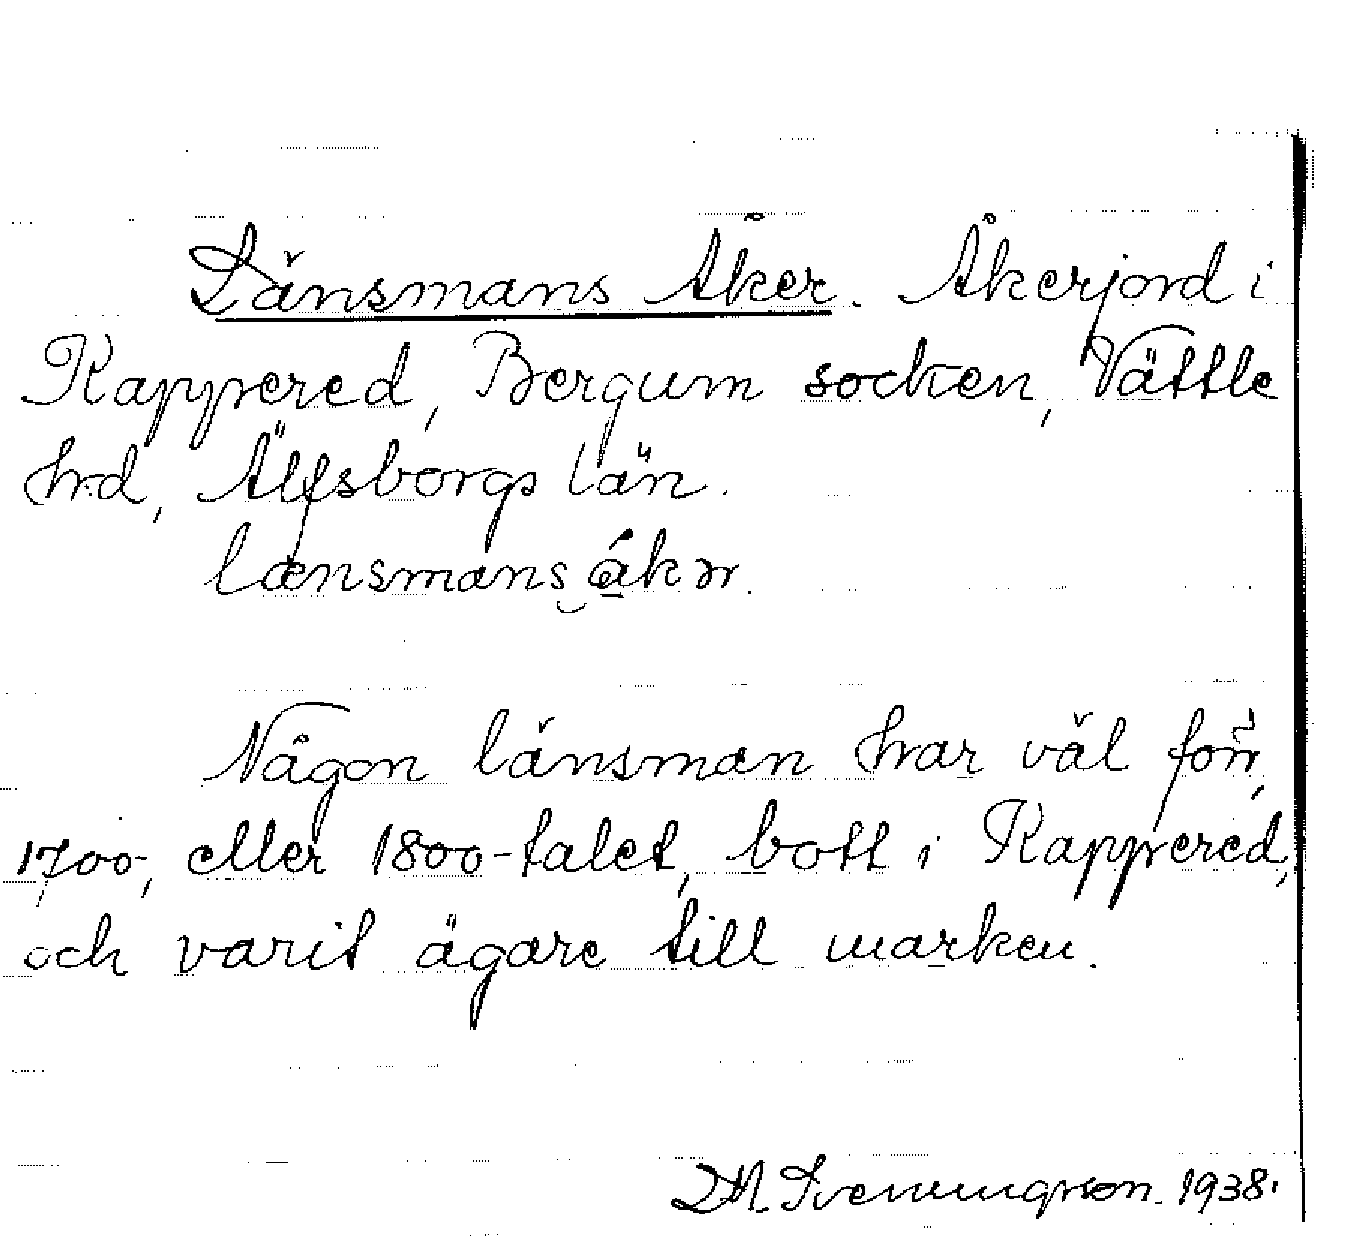 Länsmans Åker. Åkerjord i
Rappered, Bergum socken, Vättle
hrd, Älfsborgs län.
lænsmans‿åkər.
Någon länsman har väl förr,
1700-, eller 1800-talet, bott i Rappered,
och varit ägare till marken.
Svenningson. 1938.